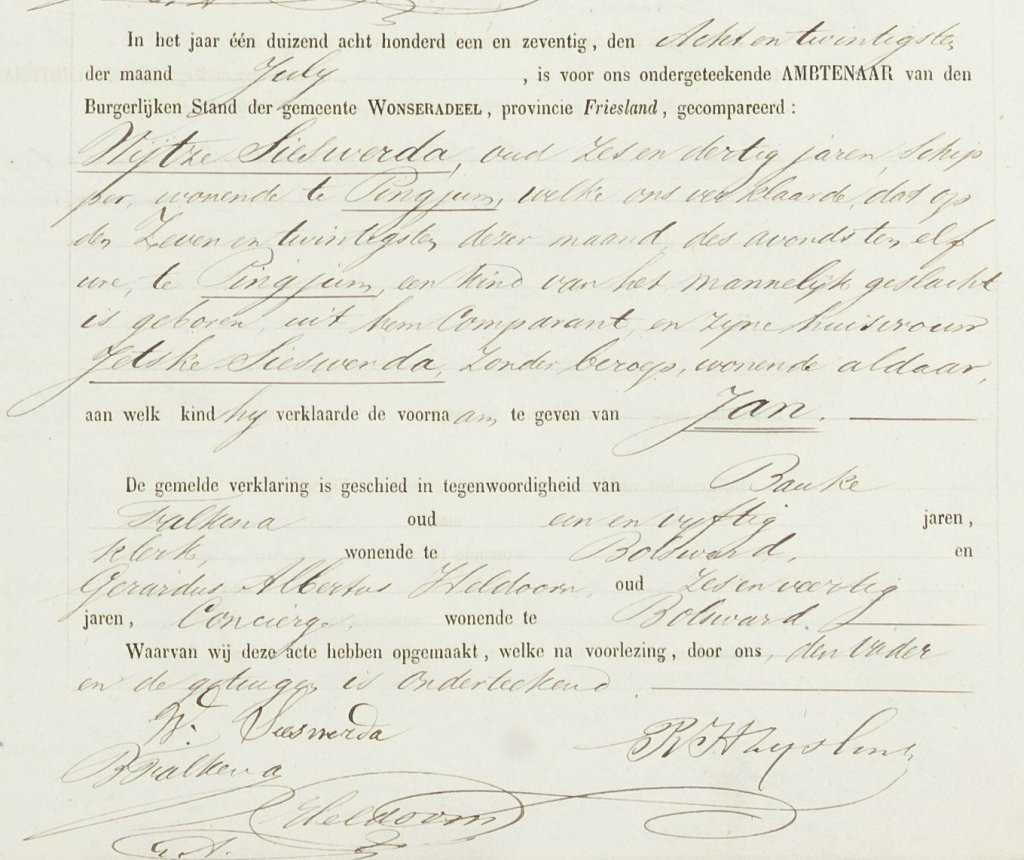 In het jaar één duizend acht honderd een en zeventig, den Acht en twintigsten
der maand July, is voor ons ondergeteekende AMBTENAAR van den
Burgerlijken Stand der gemeente WONSERADEEL, provincie Friesland, gecompareerd:
Wijtze Sieswerda, oud Zes en dertig jaren, Schip
per, wonende te Pingjum, welke ons verklaarde, dat op
den Zeven en twintigsten dezer maand, des avonds ten elf
ure, te Pingjum, een Kind van het mannelijk geslacht
is geboren, uit hem Comparant, en zijne huisvrouw
Jetske Sieswerda, Zonder beroep, wonende aldaar,
aan welk kind hy verklaarde de voornaam te geven van Jan.
De gemelde verklaring is geschied in tegenwoordigheid van Bauke
Falkena oud een en vyftig jaren,
Klerk, wonende te Bolsward, en
Gerardus Albertus Heldoorn, oud Zes en veertig
jaren, Concierge, wonende te Bolsward.
Waarvan wij deze acte hebben opgemaakt, welke na voorlezing, door ons, den Vader
en de getuigen is Onderteekend.
W. Sieswerda
B Falkena
Heldoorn